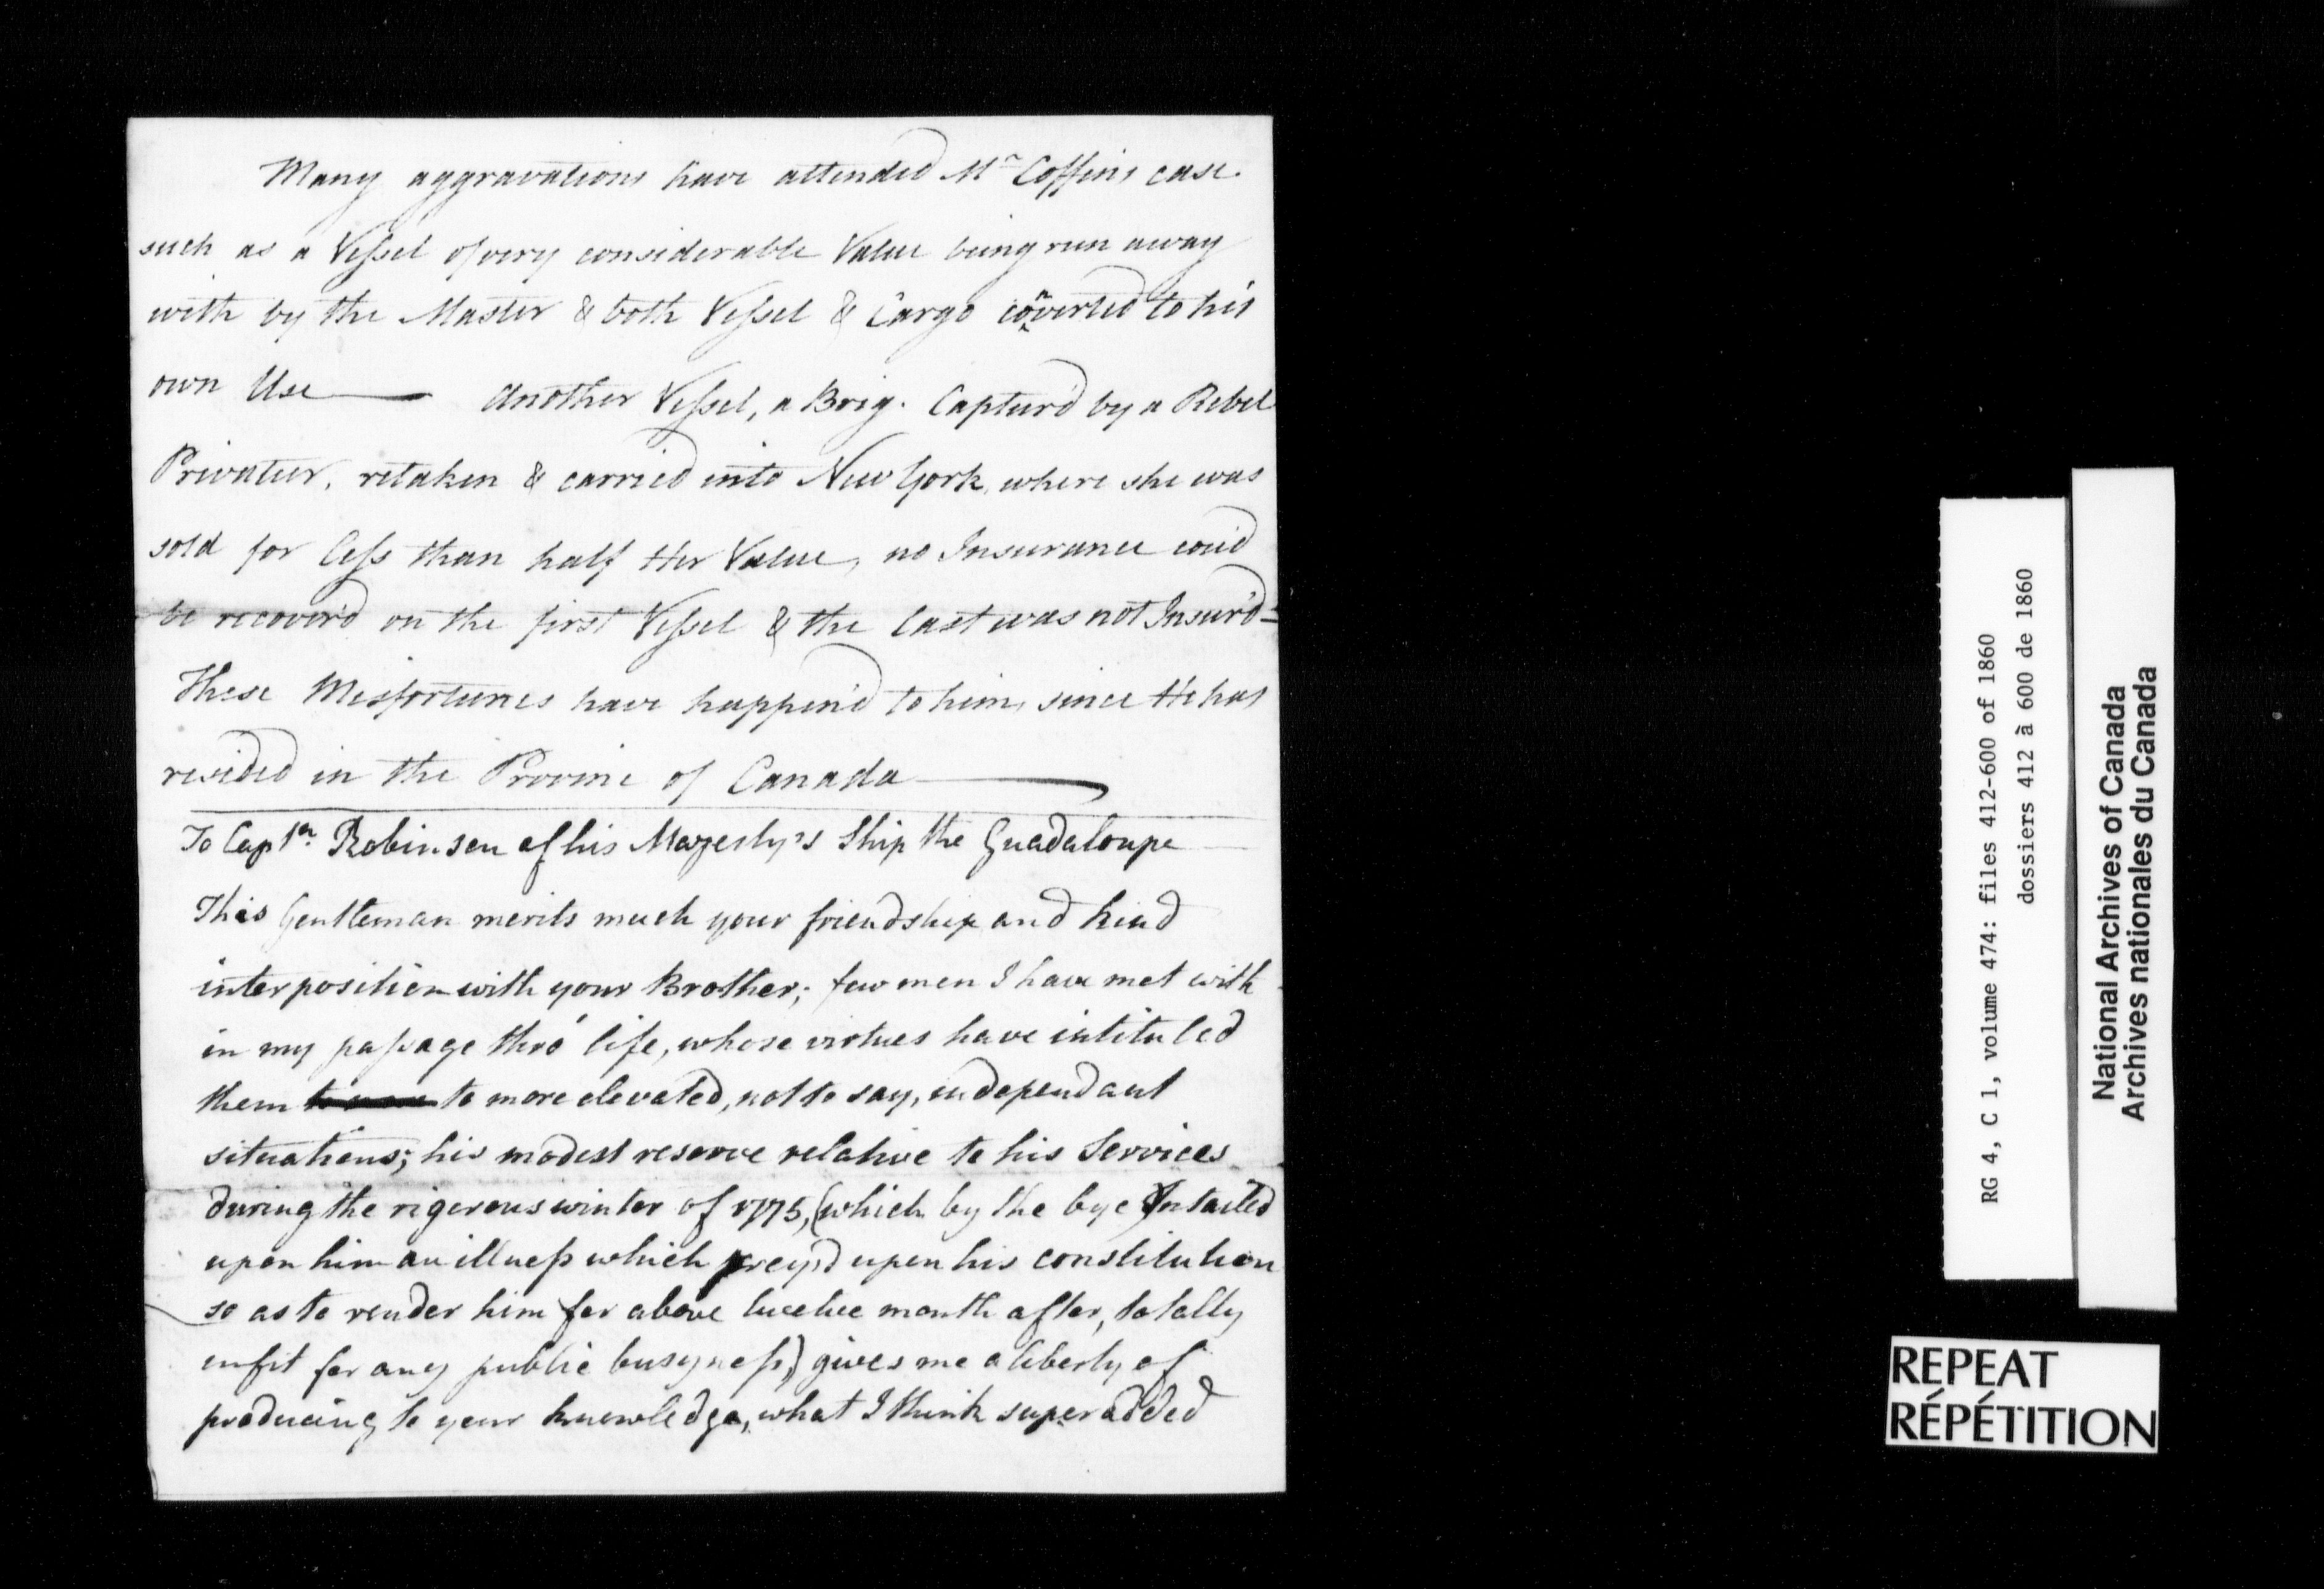 Many aggravations have attended Mr Coffins case.
such as a Vessel of very considerable Value being run away
with by the Master & both Vessel & Cargo converted to his
own Use — Another Vessel, a Brig. Captur'd by a Rebel
Privateer, retaken & carried into New York, where she was
sold for less than half Her Value, no Insurance cou'd
be recover'd on the first Vessel & the last was not Insur'd =
These Misfortunes have happen'd to him, since He has
resided in the Provine of Canada —
To Captn. Robinson of his Majesty's Ship the Guadaloupe
This Gentleman merits much your friendship and kind
interposition with your Brother; few men I have met with
in my passage thro' life, whose virtues have intituled
them to more elevated, not to say, independant
situations; his modest reserve relative to his Services
during the rigerous winter of 1775, (which by the bye Intailed
upon him an illness which prey'd upon his constitution
so as to render him for above twelve month after, totally
unfit for any public busyness) gives me a liberty of
producing to your knowledge, what I think superadded
RG 4, C 1, volume 474: files 412-600 of 1860
dossiers 412 à 600 de 1860
National Archives of Canada
Archives nationales du Canada
REPEAT
RÉPÉTITION